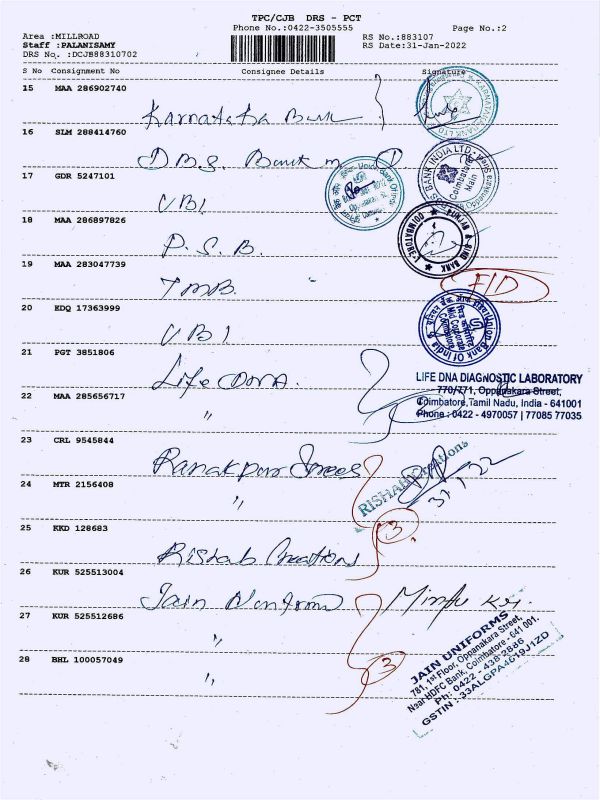 TPC/CJB DRS - PCT
Phone No.:0422-3505555 Page No.:2
Area :MILLROAD RS No.:883107
Staff :PALANISAMY RS Date:31-Jan-2022
DRS No. :DCJB88310702
S No Consignment No Consignee Details Signature
15 MAA 286902740
Karnataka Bank
KARNATAKA BANK LTD
16 SLM 288414760
DBS Bank
BANK INDIA LTD
Coimbatore Main
17 GDR 5247101
UBI
Union Bank of India
18 MAA 286897826
P.S.B.
& SIND BANK
COIMBATORE
19 MAA 283047739
TMB.
20 KDQ 17363999
UBI
Union Bank Of India
Mid Corporate
21 PGT 3851806
Life DNA.
LIFE DNA DIAGNOSTIC LABORATORY
770/771, Oppanakara Street,
Coimbatore,Tamil Nadu, India - 641001
Phone : 0422 - 4970057 | 77085 77035
22 MAA 285656717
"
23 CRL 9545844
Ranakpur
RISHAB Creations
24 MTR 2156408
"
3
25 KKD 128683
Rishab Creations
26 KUR 525513004
Jain Uniforms
27 KUR 525512686
"
28 BHL 100057049
"
3
JAIN UNIFORMS
781, 1st Floor, Oppanakara Street,
Near HDFC Bank, Coimbatore - 641 001.
Ph: 0422 - 438 2886
GSTIN : 33ALGPA4619J1ZD